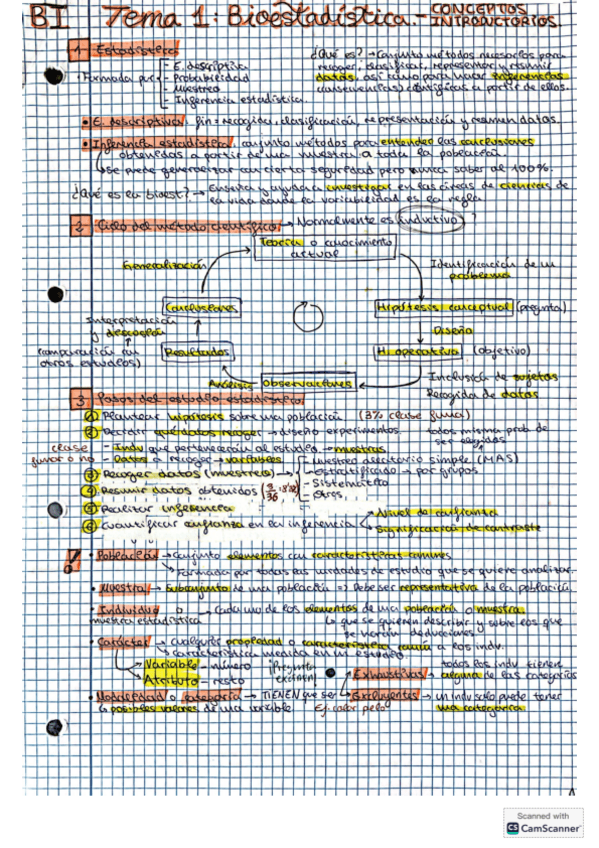 BI Tema 1: Bioestadística.- CONCEPTOS INTRODUCTORIOS.
1 Estadística
· Formada por
- E. descriptiva
- Probabilidad
- Muestreo
- Inferencia estadística.
¿Qué es? → Conjunto métodos necesarios para
recoger, clasificar, representar y resumir
datos, así como para hacer inferencias
(consecuencias) científicas a partir de ellos.
• E. descriptiva: fin = recogida, clasificación, representación y resumen datos.
• Inferencia estadística: conjunto métodos para extender las conclusiones
obtenidas a partir de una muestra a toda la población.
↳ se puede generalizar con cierta seguridad pero nunca saber al 100%.
¿Qué es la bioest? → Enseña y ayuda a investigar en las áreas de ciencias de
la vida donde la variabilidad es la regla
2 Ciclo del método científico → Normalmente es inductivo ?
Teoría o conocimiento
actual
Generalización
Identificación de un
problema
Conclusiones
Hipótesis conceptual (pregunta)
Interpretación
y discusión
Diseño
(comparación con
otros estudios)
Resultados
H. operativa (objetivo)
Análisis
Observaciones
Inclusión de sujetos
Recogida de datos
3 Pasos del estudio estadístico
1 Plantear hipótesis sobre una población (3% clase fuma)
2 Decidir qué datos recoger → diseño experimentos.
todos misma prob de
ser elegidos
- Indv que pertenecerán al estudio → muestras
clase
fumar o no
- Datos a recoger → variables
3 Recoger datos (muestreo) →
- Muestreo aleatorio simple (MAS)
- Estratificado → por grupos
- Sistemático
- Otros
4 Resumir datos obtenidos
5 Realizar inferencia
6 Cuantificar confianza en la inferencia
→ Nivel de confianza
→ Significación de contraste
!
• Población → Conjunto elementos con características comunes
↳ Formada por todas las unidades de estudio que se quiere analizar.
• Muestra → Subconjunto de una población => Debe ser representativa de la población.
• Individuo o
muestra estadística
→ Cada uno de los elementos de una población o muestra
↳ que se quieren describir y sobre los que
se harán deducciones
• Carácter → cualquier propiedad o característica común a los indv.
↳ característica medida en un estudio.
→ Variable - número
→ Atributo - resto
¡Pregunta
examen!
• Modalidad o categoría → TIENEN que ser
↳ posibles valores de una variable
Ej. color pelo
Exhaustivas → todos los indv tienen
alguna de las categorías
Excluyentes → un indv solo puede tener
una categoría
Scanned with
CS CamScanner